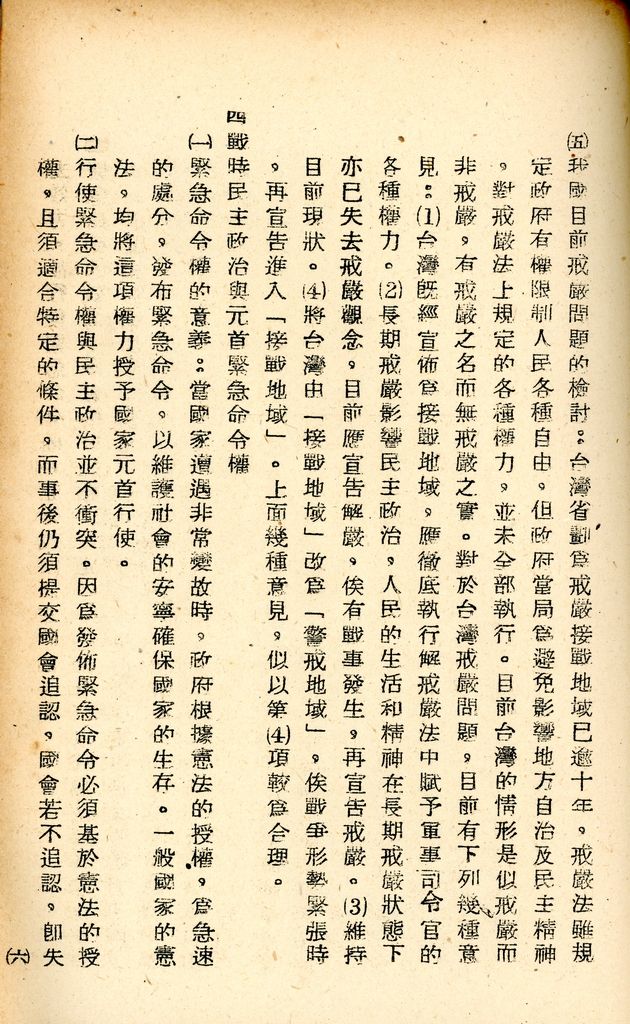 ㈤我國目前戒嚴問題的檢討：台灣省劃爲戒嚴接戰地域已逾十年。戒嚴法雖規
定政府有權限制人民各種自由，但政府當局爲避免影響地方自治及民主精神
，對戒嚴法上規定的各種權力，並未全部執行。目前台灣的情形是似戒嚴而
非戒嚴，有戒嚴之名而無戒嚴之實。對於台灣戒嚴問題，目前有下列幾種意
見：⑴台灣旣經宣佈爲接戰地域，應徹底執行解戒嚴法中賦予軍事司令官的
各種權力。⑵長期戒嚴影響民主政治，人民的生活和精神在長期戒嚴狀態下
亦已失去戒嚴觀念。目前應宣告解嚴，俟有戰事發生，再宣告戒嚴。⑶維持
目前現狀。⑷將台灣由「接戰地域」改爲「警戒地域」，俟戰爭形勢緊張時
，再宣告進入「接戰地域」。上面幾種意見，似以第⑷項較爲合理。
四戰時民主政治與元首緊急命令權
㈠緊急命令權的意義：當國家遭遇非常變故時，政府根據憲法的授權，爲急速
的處分，發布緊急命令，以維護社會的安寧確保國家的生存。一般國家的憲
法，均將這項權力授予國家元首行使。
㈡行使緊急命令權與民主政治並不衝突。因爲發佈緊急命令必須基於憲法的授
權，且須適合特定的條件，而事後仍須提交國會追認，國會若不追認，卽失
㈥